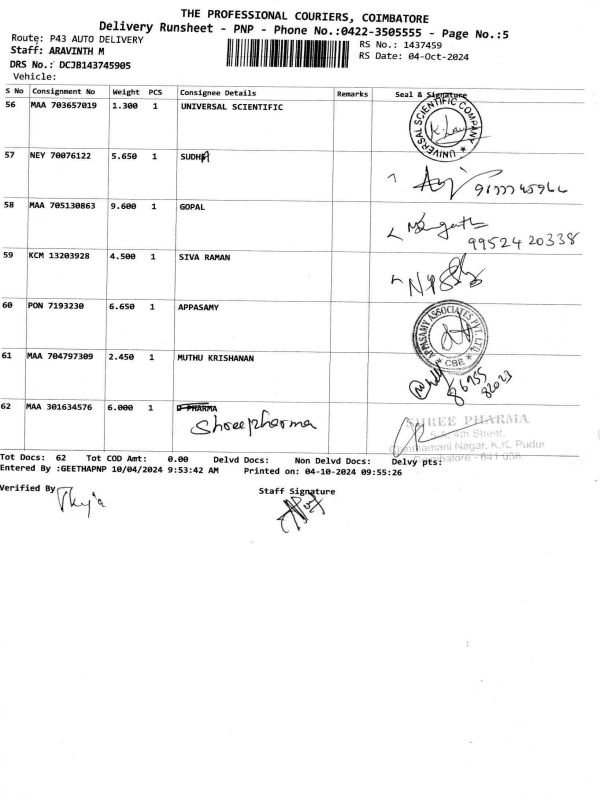 THE PROFESSIONAL COURIERS, COIMBATORE
Delivery Runsheet - PNP - Phone No.:0422-3505555 - Page No.:5
Route: P43 AUTO DELIVERY
RS No.: 1437459
Staff: ARAVINTH M
RS Date: 04-Oct-2024
DRS No.: DCJB143745905
Vehicle:
S No Consignment No Weight PCS Consignee Details Remarks Seal & Signature
56 MAA 703657019 1.300 1 UNIVERSAL SCIENTIFIC
UNIVERSAL SCIENTIFIC COMPANY
57 NEY 70076122 5.650 1 SUDHA
58 MAA 705130863 9.600 1 GOPAL
99524 20338
59 KCM 13203928 4.500 1 SIVA RAMAN
60 PON 7193230 6.650 1 APPASAMY
APPASAMY ASSOCIATES PVT. LTD.
CBE
61 MAA 704797309 2.450 1 MUTHU KRISHANAN
62 MAA 301634576 6.000 1 D PHARMA
Shreepharma
SHREE PHARMA
4th Street,
Nagar, K.K. Pudur
Coimbatore - 641 038
Tot Docs: 62 Tot COD Amt: 0.00 Delvd Docs: Non Delvd Docs: Delvy pts:
Entered By :GEETHAPNP 10/04/2024 9:53:42 AM Printed on: 04-10-2024 09:55:26
Verified By
Staff Signature